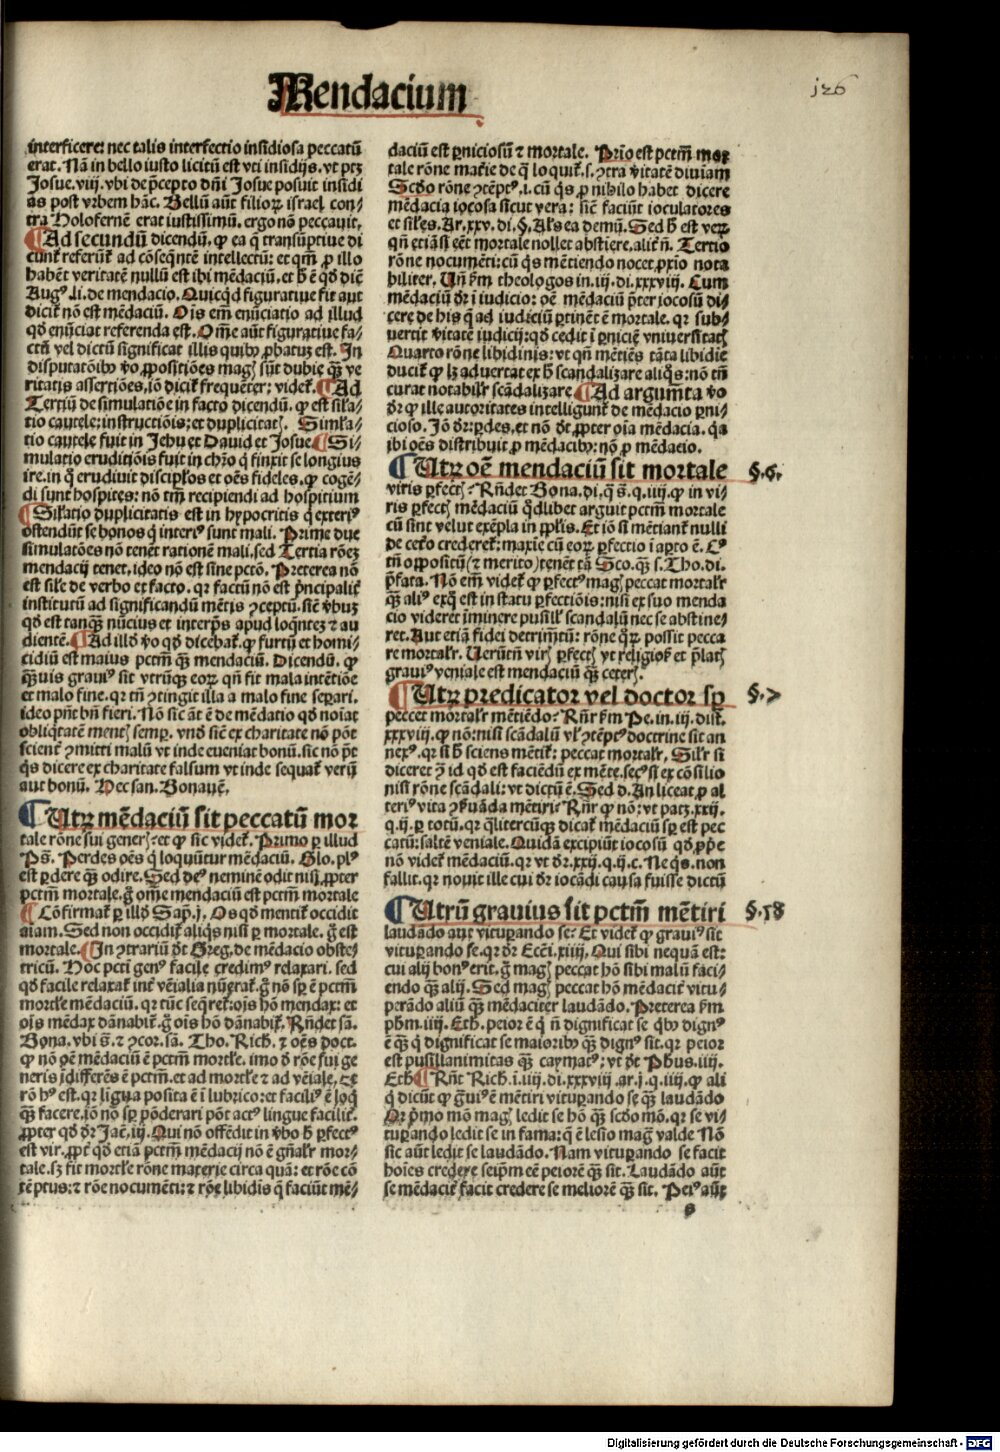 Mendacium
126
interficere: nec talis interfectio insidiosa peccatū
erat. Nā in bello iusto licitū est vti insidijs. vt ptꝫ
Josue. viij. vbi de p̄cepto dn̄i Josue posuit insidi
as post vrbem hāc. Bellū aūt filioꝝ israel con⸗
tra Holofernē erat iustissimū. ergo nō peccauit.
¶ Ad secundū dicendū. ꝙ ea q̄ transūptiue di
cunt᷑ referūt᷑ ad cōseqn̄tē intellectū: et qm̄ ꝓ illo
habēt veritatē nullū est ibi mēdaciū. et h̄ ē qd̓ diē
Augꝰ li. de mendacio. Quicqd̓ figuratiue fit aut
dicit᷑ nō est mēdaciū. Oīs em̄ enūciatio ad illud
qd̓ enūciat referenda est. Om̄e aūt figuratiue fa⸗
ctū vel dictū significat illis quibꝰ ꝓbatuꝫ est. In
disputatōibꝰ v̓o ꝓpositiōes magꝭ sūt dubie qꝫ̄ ve
ritatis assertiōes. iō dicit᷑ frequēter: videt᷑. ¶ Ad
Tertiū de simulatiōe in facto dicendū. ꝙ est sil̓a⸗
tio cautele: instructiōis: et duplicitatꝭ. Siml̓a⸗
tio cautele fuit in Jehu et Dauid et Josue. ¶ Si⸗
mulatio eruditiōis fuit in chrō ꝙ finxit se longius
ire. in q̄ erudiuit discipl̓os et oēs fideles. ꝙ cogē⸗
di sunt hospites: nō tm̄ recipiendi ad hospitium
¶ Sil̓atio duplicitatis est in hypocritis q̄ exteriꝰ
ostendūt se bonos q̄ interiꝰ sunt mali. Prime due
simulatōes nō tenēt rationē mali. sed Tertia rōeꝫ
mendacij tenet. ideo nō est sine pctō. Preterea nō
est sil̓e de verbo et facto. qr factū nō est p̄ncipalit᷑
institutū ad significandū mētis ꝯceptū. sic̄ v̓buꝫ
qd̓ est tanqꝫ̄ nūcius et interp̄s apud loqn̄tez ⁊ au
dientē. ¶ Ad illd̓ v̓o qd̓ dicebat᷑. ꝙ furtū et homi⸗
cidiū est maius pctm̄ qꝫ̄ mendaciū. Dicendū. ꝙ
qꝫ̄uis grauiꝰ sit vtrūqꝫ eoꝝ qn̄ fit mala intētiōe
et malo fine. qr tn̄ ꝯtingit illa a malo fine sep̄ari.
ideo pn̄t bn̄ fieri. Nō sic āt ē de mēdatio qd̓ noīat
obliqtatē mentꝭ semꝑ. vnd̓ sic̄ ex charitate nō pōt
scient᷑ ꝯmitti malū vt inde eueniat bonū. sic nō pōt
q̄s dicere ex charitate falsum vt inde sequat᷑ verū
aut bonū. Hec san. Bonauē.
¶ Utꝝ mēdaciū sit peccatū mor
tale rōne sui generꝭ: et ꝙ sic videt᷑. Primo ꝑ illud
Pš. Perdes oēs q̄ loquūtur mēdaciū. Glo. plꝰ
est ꝑdere qꝫ̄ odire. Sed deꝰ neminē odit nisi ꝓpter
pctm̄ mortale. g̊ om̄e mendaciū est pctm̄ mortale
¶ Cōfirmat᷑ ꝑ illd̓ Sap. j. Os qd̓ mentit᷑ occidit
aīam. Sed non occidit᷑ aliq̄s nisi ꝑ mortale. g̊ est
mortale. ¶ In ꝯtrariū d̓t Greg. de mēdacio obste⸗
tricū. Hoc pctī genꝰ facile credimꝰ relaxari. sed
qd̓ facile relaxat᷑ int᷑ vēialia nūerat᷑. g̊ nō sꝑ ē pctm̄
mortl̓e mēdaciū. qr tūc seqret᷑: oīs hō mendax: et
oīs mēdax dānabit᷑. g̊ oīs hō dānabit᷑. Rn̄det sā.
Bona. vbi s̄. ⁊ ꝯcor. sā. Tho. Rich. ⁊ oēs doct.
ꝙ nō oē mēdaciū ē pctm̄ mortl̓e. imo d̓ rōe sui ge
neris īdifferēs ē pctm̄. et ad mortl̓e ⁊ ad vēiale. et
rō hꝰ est. qr ligua posita ē ī lubrico: et faciliꝰ ē loq̄
qꝫ̄ facere. iō nō sꝑ pōderari pōt actꝰ lingue facilit᷑.
ꝓpter qd̓ d̓r Jac̄. iij. Qui nō offēdit in v̓bo h̄ ꝑfectꝰ
est vir. ꝓpt᷑ qd̓ etiā pctm̄ mēdacij nō ē gn̄al̓r mor⸗
tale. sꝫ fit mortl̓e rōne materie circa quā: et rōe cō
tēptus: ⁊ rōe nocumēti: ⁊ rōe libidis q̄ faciūt mē⸗
daciū est ꝑniciosū ⁊ mortale. Prīo est pctm̄ mor
tale rōne mat̓ie de q̄ loquit᷑. s. ꝯtra v̓itatē diuinam
Scd̓o rōne ꝯtēptꝰ. i. cū q̄s ꝓ nihilo habet dicere
mēdacia iocosa sicut vera: sic̄ faciūt ioculatores
et sil̓es. Ar. xxv. di. §. Al̓s ea demū. Sed h̄ est veꝝ
qn̄ etiā si eēt mortale nollet abstiere. alit᷑ n̄. Tertio
rōne nocumēti: cū q̄s mētiendo nocet ꝓxīo nota
biliter. Un̄ fm̄ theologos in. iij. di. xxxviij. Cum
mēdaciū d̓r ī iudicio: oē mēdaciū p̄ter iocosū di⸗
cere de his q̄ ad iudiciū ꝑtinēt ē mortale. qr sub⸗
uertit v̓itatē iudicij: qd̓ cedit ī ꝑniciē vniuersitatꝭ
Quarto rōne libidinis: vt qn̄ mētiēs tāta libidie
ducit᷑ ꝙ lꝫ aduertat ex h̄ scādalizare aliq̄s: nō tn̄
curat notabil̓r scādalizare ¶ Ad argum̄ta v̓o
d̓r ꝙ ille autoritates intelligunt᷑ de mēdacio ꝑni⸗
cioso. Iō d̓r: ꝑdes. et nō d̓t ꝓpter oīa mēdacia. qa
ibi oēs distribuit ꝓ mēdacibꝰ: nō ꝓ mēdacio.
¶ Utꝝ oē mendaciū sit mortale
§. 6.
viris ꝑfectꝭ? Rn̄det Bona. di. q̄ s̄. q. iiij. ꝙ in vi⸗
ris ꝑfectꝭ mēdaciū qd̓libet arguit pctm̄ mortale
cū sint velut exēpla in ꝓl̓is. Et iō si mētiant᷑ nulli
de cet̓o crederet᷑: maxīe cū eoꝝ ꝑfectio ī aꝑto ē. Cꝰ
tn̄ oppositū (⁊ merito) tenēt tā Sco. qꝫ̄ s. Tho. di.
p̄fata. Nō em̄ videt᷑ ꝙ ꝑfectꝰ magꝭ peccat mortal̓r
qꝫ̄ aliꝰ ex q̊ est in statu ꝑfectiōis: nisi ex suo menda
cio videret īminere pusill̓ scandalū nec se abstine⸗
ret. Aut etiā fidei detrim̄tū: rōne q̊ꝝ possit pecca
re mortal̓r. Uerūtn̄ virꝭ ꝑfectꝭ vt religiosꝭ et p̄latꝭ
grauiꝰ veniale est mendaciū qꝫ̄ ceterꝭ.
¶ Utꝝ predicator vel doctor sꝑ
§. 7
peccet mortal̓r mētiēdo? Rn̄r fm̄ Pe. in. iij. dist.
xxxviij. ꝙ nō: nisi scādalū vl̓ ꝯtēptꝰ doctrine sit an
nexꝰ. qr si h̄ sciens mētit᷑: peccat mortal̓r. Sil̓r si
diceret ꝯ id qd̓ est faciēdū ex mēte. secꝰ si ex cōsilio
nisi rōne scādali: vt dictū ē. Sed d̓. An liceat ꝓ al
teriꝰ vita ꝯẜuāda mētiri? Rn̄r ꝙ nō: vt patꝫ. xxij.
q. ij. ꝑ totū. qr qlitercūqꝫ dicat᷑ mēdaciū sꝑ est pec
catū: saltē veniale. Quidā excipiūt iocosū qd̓ ꝓpe
nō videt᷑ mēdaciū. qr vt d̓r. xxij. q. ij. c. Ne q̄s. non
fallit. qr nouit ille cui d̓r iocādi causa fuisse dictū
¶ Utrū grauius sit pctm̄ mētiri
§. 18
laudādo aut vituꝑando se? Et videt᷑ ꝙ grauiꝰ sit
vituꝑando se. qr d̓r Ecc̄i. xiiij. Qui sibi nequā est:
cui alij bonꝰ erit. g̊ magꝭ peccat hō sibi malū faci⸗
endo qꝫ̄ alij. Sed magꝭ peccat hō mēdacit᷑ vitu⸗
perādo aliū qꝫ̄ mēdaciter laudādo. Preterea fm̄
phm̄. iiij. Eth. peior ē q̄ n̄ dignificat se q̊bꝰ dignꝰ
ē qꝫ̄ q̄ dignificat se maioribꝰ qꝫ̄ dignꝰ sit. qr peior
est pusillanimitas qꝫ̄ caymatꝰ: vt d̓t Phus. iiij.
Eth ¶ Rn̄t Rich. ī. iiij. di. xxxviij. ar. j. q. iiij. ꝙ ali
q̄ dicūt ꝙ g̊uiꝰ ē mētiri vituꝑando se qꝫ̄ laudādo
Qr p̄mo mō magꝭ ledit se hō qꝫ̄ scd̓o mō. qr se vi⸗
tuꝑando ledit se in fama: q̄ ē lesio magꝭ valde Nō
sic aūt ledit se laudādo. Nam vituꝑando se facit
hoīes credere seip̄m eē peiorē qꝫ̄ sit. Laudādo aūt
se mēdacit᷑ facit credere se meliorē qꝫ̄ sit. Peiꝰ aūt
s
Digitalisierung gefördert durch die Deutsche Forschungsgemeinschaft - DFG